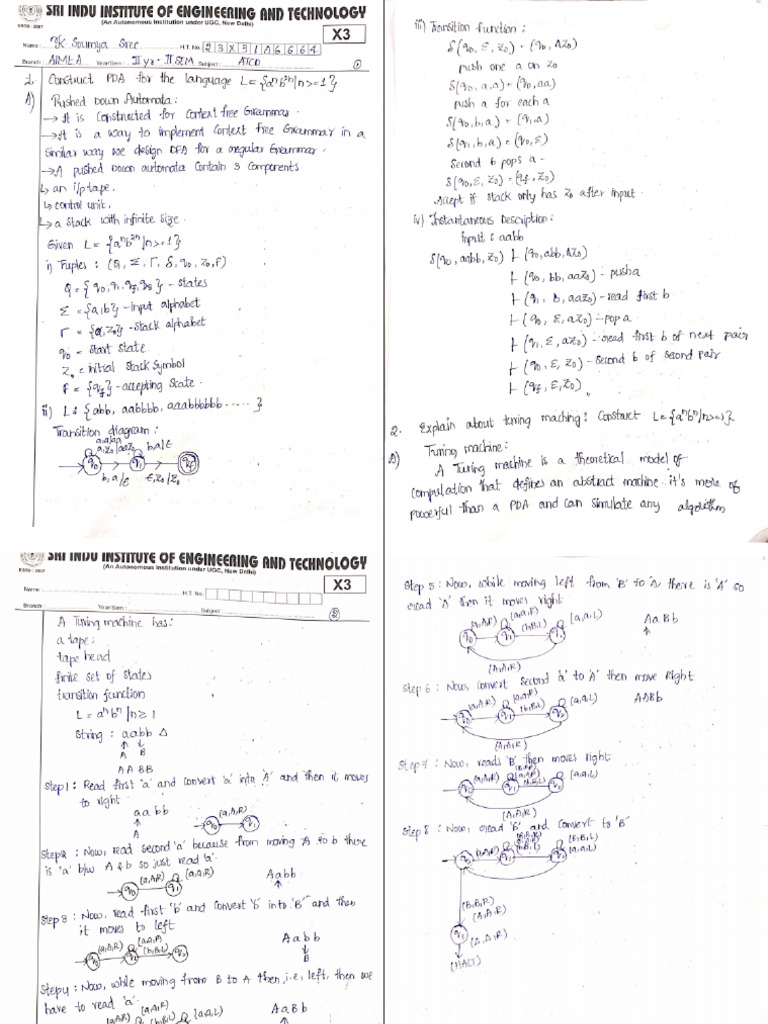 SRI INDU INSTITUTE OF ENGINEERING AND TECHNOLOGY
(An Autonomous Institution under UGC, New Delhi)
X3
ESTD : 2007
Name: K. Soumya Sree H.T. No. 23X31A6664
Branch: AIML-A Year/Sem: II yr - II SEM Subject: ATCD
①
2. Construct PDA for the language L = {aⁿb²ⁿ | n>=1}
A) Pushed Down Automata:
→ It is Constructed for Context free Grammar.
→ It is a way to implement Context free Grammar in a
similar way we design DFA for a regular Grammar.
→ A pushed Down automata Contain 3 Components
↳ an i/p tape.
↳ control unit.
↳ a stack with infinite size.
Given L = {aⁿb²ⁿ | n>=1}
i) Truples : (Q, Σ, Γ, δ, q₀, z₀, F)
Q = {q₀, q₁, q₂, qf} - states
Σ = {a,b} - input alphabet
Γ = {a, z₀} - stack alphabet
q₀ = start state
z₀ = initial stack symbol
F = {qf} - accepting state.
ii) L = {abb, aabbbb, aaabbbbbb .....}
Transition diagram :
a,z₀/az₀
b,a/ε
q₀
q₁
qf
b,a/ε
ε,z₀/z₀
iii) Transition function :
δ(q₀, ε, z₀) = (q₀, AZ₀)
push one a on z₀
δ(q₀, a, a) = (q₀, aa)
push a for each a
δ(q₀, b, a) = (q₁, a)
δ(q₁, b, a) = (q₀, ε)
Second b pops a.
δ(q₀, ε, z₀) = (qf, z₀)
Accept if stack only has z₀ after input.
iv) Instantaneous Description:
input : aabb
δ(q₀, aabb, z₀) ⊢ (q₀, abb, AZ₀)
⊢ (q₀, bb, aaz₀) - push a
⊢ (q₁, b, aaz₀) - read first b
⊢ (q₀, ε, az₀) - pop a
⊢ (q₁, ε, az₀) - read first b of next pair
⊢ (q₀, ε, z₀) - second b of second pair
⊢ (qf, ε, z₀)
2. Explain about turing maching: Construct L={aⁿbⁿ | n>=1}
A) Turing machine:
A Turing machine is a theoretical model of
compulation that defines an abstract machine. it's more of
powerful than a PDA and can simulate any algorithm
SRI INDU INSTITUTE OF ENGINEERING AND TECHNOLOGY
(An Autonomous Institution under UGC, New Delhi)
X3
ESTD : 2007
Name: H.T. No.
Branch: Year/Sem: Subject:
②
A Turing machine has:
a tape:
tape head
finite set of states
transition function
L = aⁿbⁿ | n≥1
String : aabb Δ
↑ ↓
A B
A A B B
Step1 : Read first 'a' and convert 'a' into 'A' and then it moves
to right
aabb
↑
A
(a,A,R)
q₀
q₁
Step2 : Now, read second 'a' because from moving A to b there
is 'a' b/w A & b so just read 'a'
Aabb
↑
(a,A,R)
(a,a,R)
q₀
q₁
Step 3 : Now, read first 'b' and convert 'b' into 'B' and then
it moves to left
Aabb
↓
B
(a,A,R)
(a,a,R)
(b,B,L)
q₀
q₁
q₂
Step4 : Now, while moving from B to A then, i.e, left, then we
have to read 'a'.
AaBb
(a,A,R)
(a,a,R)
(a,a,L)
Step 5 : Now, while moving left from 'B' to 'A' there is 'A' so
read 'A' then it moves right
AaBb
↑
(a,A,R)
(a,a,R)
(b,B,L)
(a,a,L)
q₀
q₁
q₂
(A,A,R)
Step 6 : Now, convert second 'a' to 'A' then move Right
AABb
(a,A,R)
(a,a,R)
(b,B,L)
(a,a,L)
(A,A,R)
Step 7 : Now, reads 'B' then moves right
(a,A,R)
(B,B,R)
(a,a,R)
(b,B,L)
(a,a,L)
(A,A,R)
Step 8 : Now, read 'b' and convert to 'B'
(a,A,R)
(b,B,L)
(B,B,L)
(a,a,L)
(A,A,R)
(B,B,R)
(A,B,R)
(Δ,Δ,R)
(HALT)